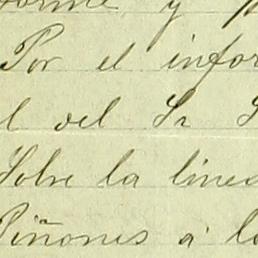 y
Por el infor
l del Sr S
Sobre la linea
Piñones á la